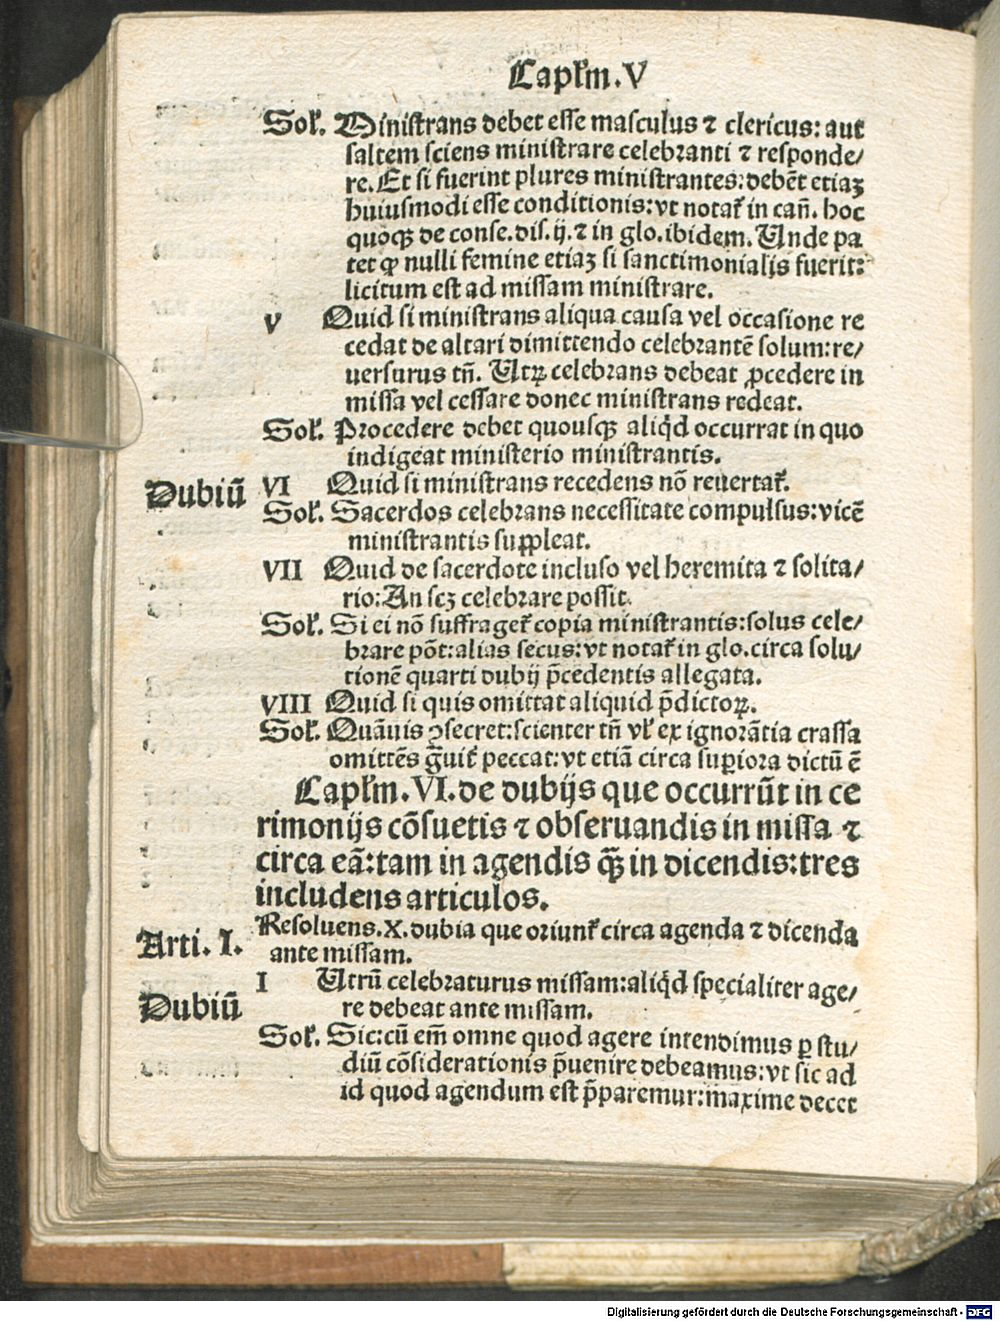 Capl̄m. V
Sol̄. Ministrans debet esse masculus ⁊ clericus: aut
saltem sciens ministrare celebranti ⁊ responde/
re. Et si fuerint plures ministrantes: debēt etiaꝫ
huiusmodi esse conditionis: vt notat᷑ in cañ. hoc
quoqꝫ de conse. dis. ij. ⁊ in glo. ibidem. Unde pa
tet ꝙ nulli femine etiaꝫ si sanctimonialis fuerit:
licitum est ad missam ministrare.
V Quid si ministrans aliqua causa vel occasione re
cedat de altari dimittendo celebrantē solum: re/
uersurus tñ. Utꝝ celebrans debeat ꝓcedere in
missa vel cessare donec ministrans redeat.
Sol̄. Procedere debet quousqꝫ aliq̇d occurrat in quo
indigeat ministerio ministrantis.
Dubiū VI Quid si ministrans recedens nō reuertat᷑.
Sol̄. Sacerdos celebrans necessitate compulsus: vicē
ministrantis suppleat.
VII Quid de sacerdote incluso vel heremita ⁊ solita/
rio: An scꝫ celebrare possit.
Sol̄. Si ei nō suffraget᷑ copia ministrantis: solus cele/
brare pōt: alias secus: vt notat᷑ in glo. circa solu/
tionē quarti dubij p̄cedentis allegata.
VIII Quid si quis omittat aliquid p̄dictoꝝ.
Sol̄. Quāuis ꝯsecret: scienter tñ vl̄ ex ignorātia crassa
omittēs ḡuit᷑ peccat: vt etiā circa supiora dictū ē
Capl̄m. VI. de dubijs que occurrūt in ce
rimonijs cōsuetis ⁊ obseruandis in missa ⁊
circa eā: tam in agendis qꝫ̄ in dicendis: tres
includens articulos.
Arti. I. Resoluens. X. dubia que oriunt᷑ circa agenda ⁊ dicenda
ante missam.
Dubiū I Utrū celebraturus missam: aliq̇d specialiter age/
re debeat ante missam.
Sol̄. Sic: cū em̄ omne quod agere intendimus ꝑ stu/
diū cōsiderationis p̄uenire debeamus: vt sic ad
id quod agendum est p̄paremur: maxime decet
Digitalisierung gefördert durch die Deutsche Forschungsgemeinschaft - DFG